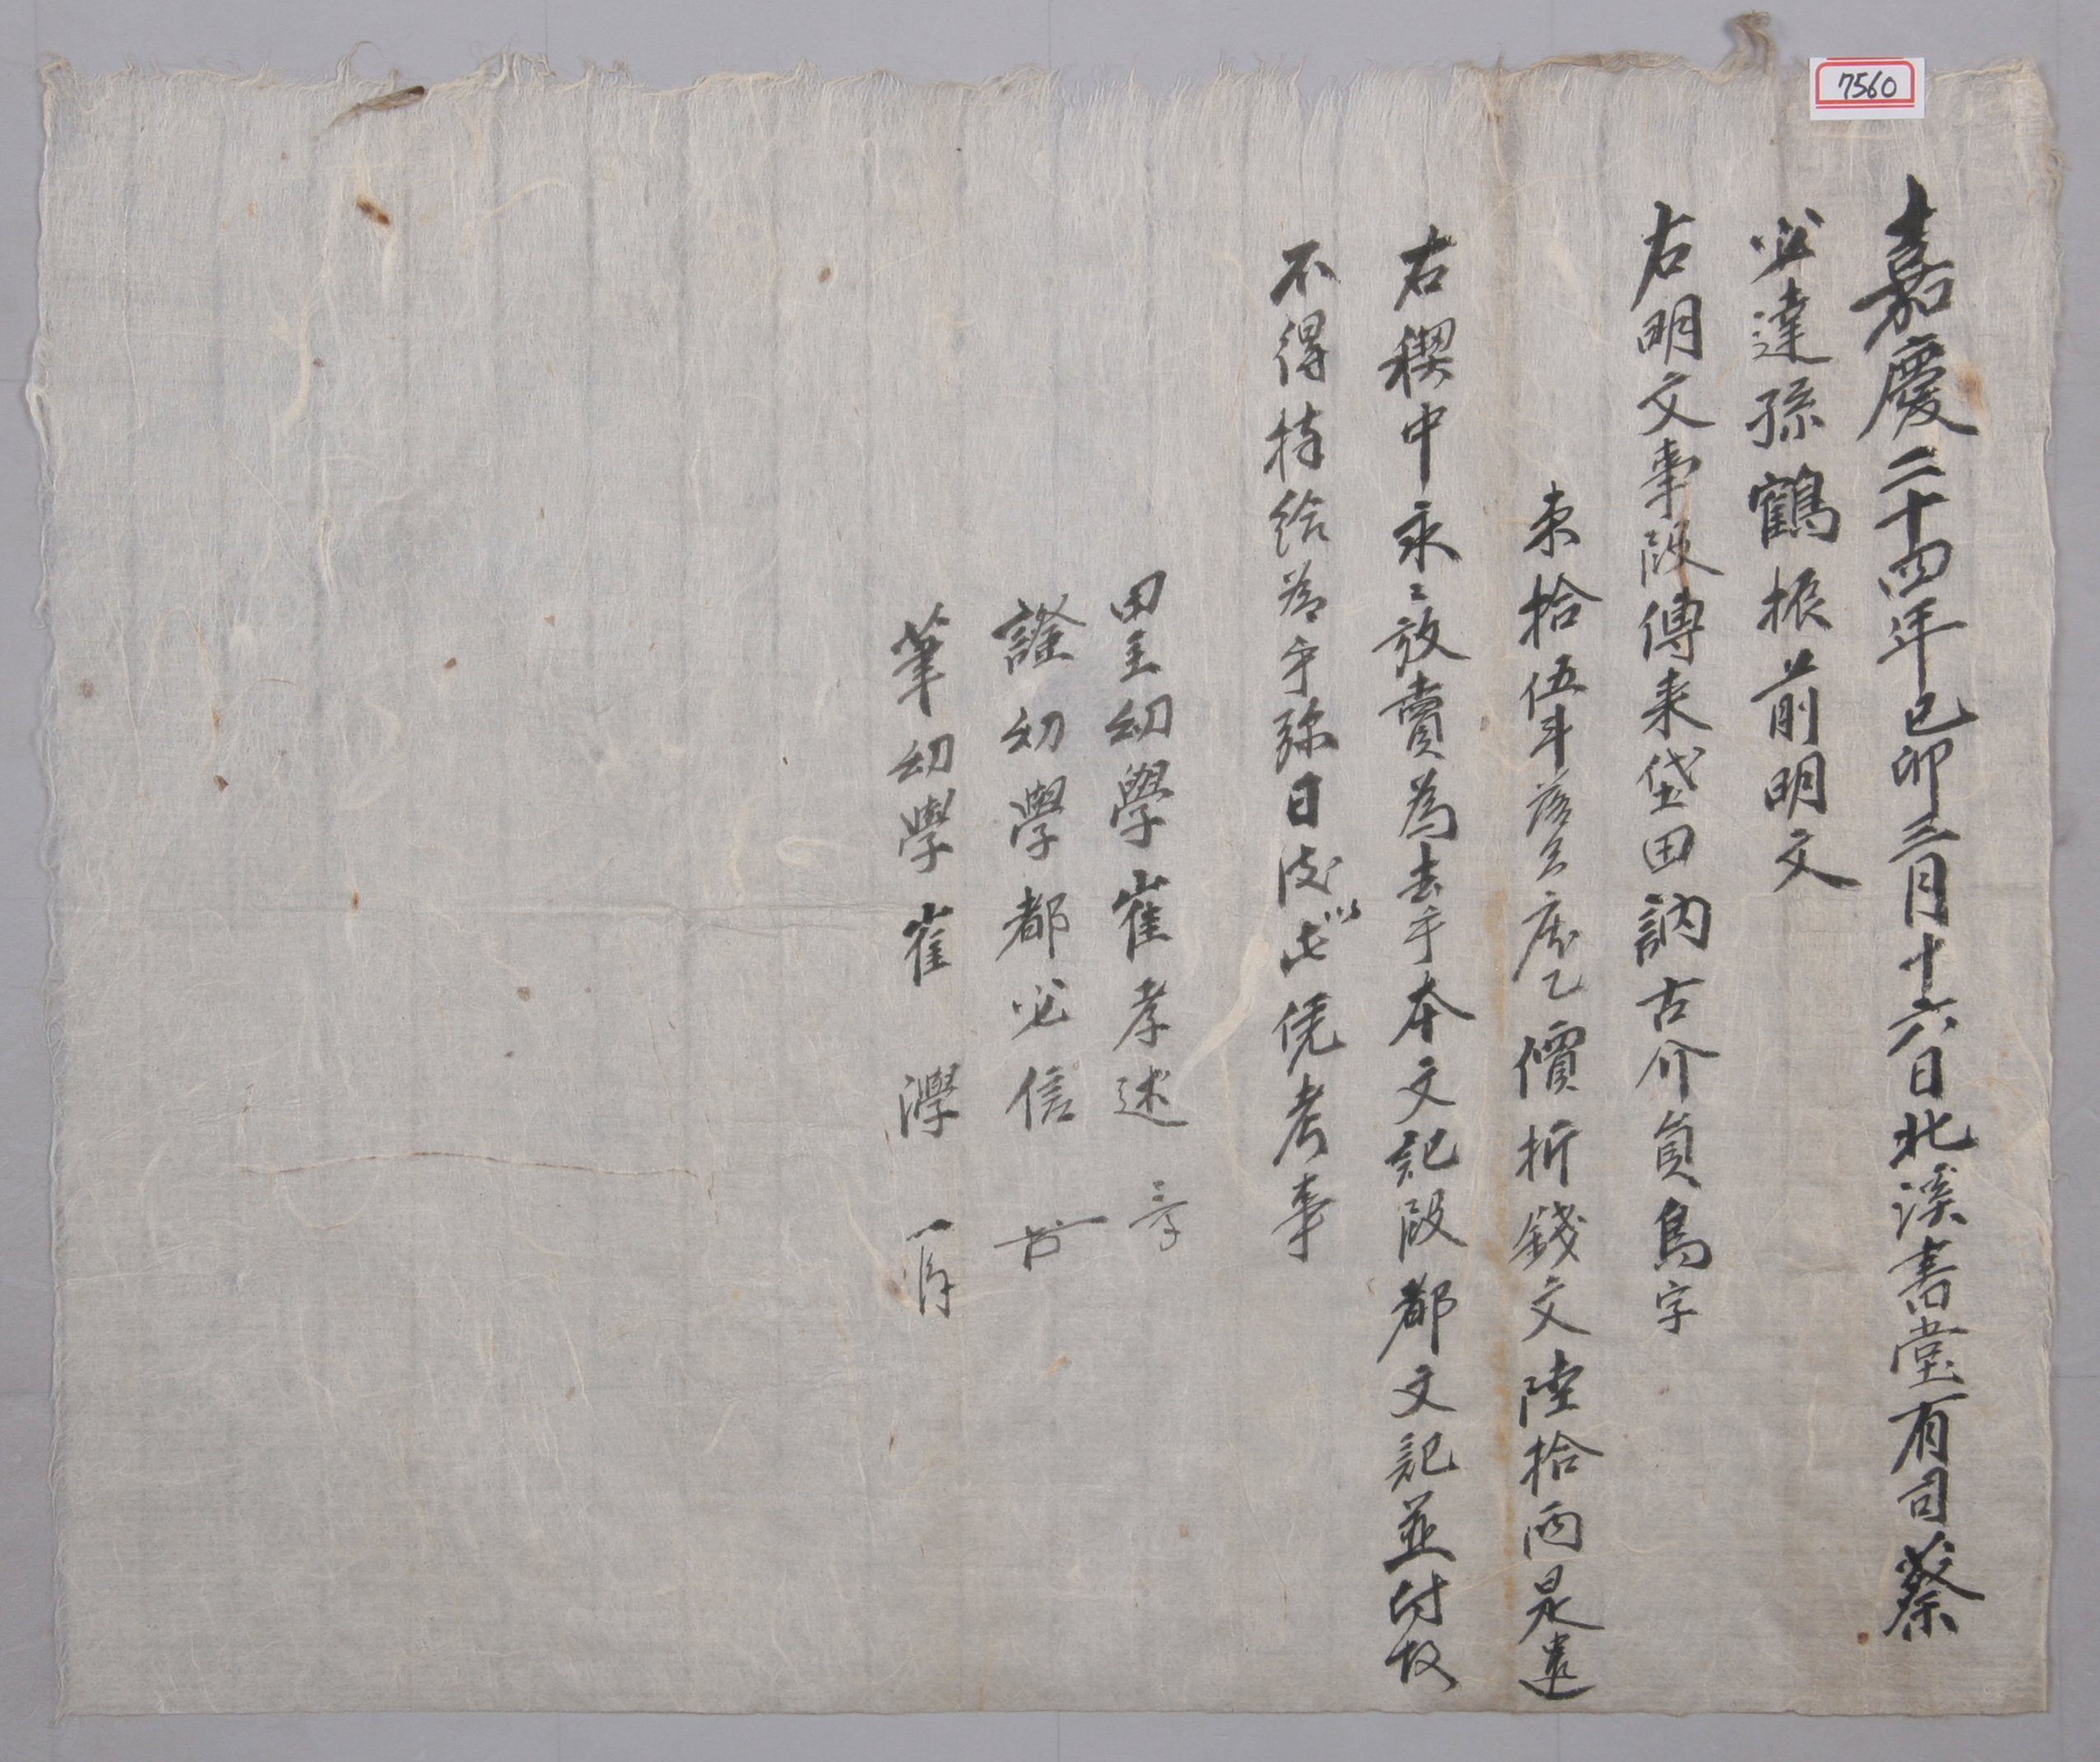 7560
嘉慶二十四年己卯三月十六日北溪書堂有司蔡
必達孫鶴振前明文
右明文事段傳来垈田訥古介員鳥字
束拾伍斗落只庫乙價折錢文陸拾両是遣
右稧中永〻放賣為去乎本文記段都文記並付故
不得持給為乎弥日後以此凴考事
田主幼學崔孝述
證幼學都必信
筆幼學崔澩